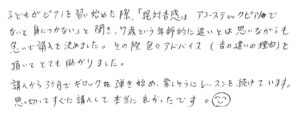 子どもがピアノを習い始めた際、「絶対音感は アコースティックピアノで
ないと身につかない」と聞き、7歳という年齢的に遅いとは思いながらも
急いで購入を決めました。その際色々アドバイス（音の違いの理由）を
頂いてとても助かりました。
購入から3ケ月でギロックを弾き始め、楽しそうにレッスンを続けています。
思い切ってすぐに購入して本当に良かったです。